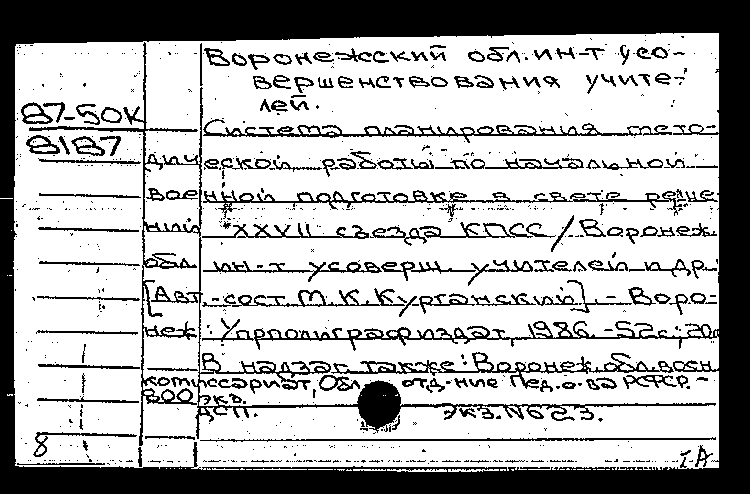 Воронежский обл. ин-т усо-
вершенствования учите-
лей.
87-50к
8187
Система планирования мето-
дической работы по начальной
военной подготовке в свете реше-
ний XXVII съезда КПСС / Воронеж.
обл. ин-т усоверш. учителей и др.
[Авт.-сост. М. К. Курганский]. - Воро-
неж : Упрполиграфиздат, 1986. - 52с.; 20с
В надзаг. также: Воронеж. обл. воен.
комиссариат, Обл. отд-ние Пед. о-ва РСФСР. -
800 экз.
ДСП. Экз. N623.
8